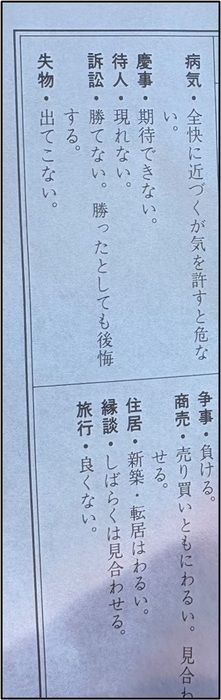 病気・全快に近づくが気を許すと危な
い。
慶事・期待できない。
待人・現れない。
訴訟・勝てない。勝ったとしても後悔
する。
失物・出てこない。
争事・負ける。
商売・売り買いともにわるい。見合わ
せる。
住居・新築・転居はわるい。
縁談・しばらくは見合わせる。
旅行・良くない。